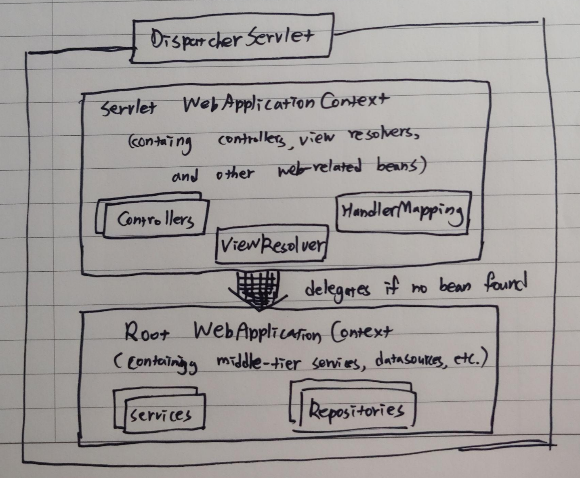 DispatcherServlet
Servlet WebApplicationContext
(containg controllers, view resolvers,
and other web-related beans)
Controllers
HandlerMapping
ViewResolver
delegates if no bean found
Root WebApplication Context
(Containigg middle-tier services, datasources, etc.)
services
Repositories